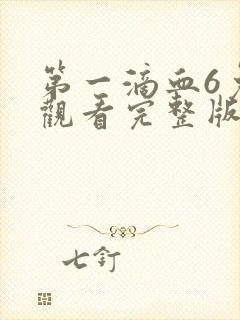 第一滴血6
觀看完整版
七釘